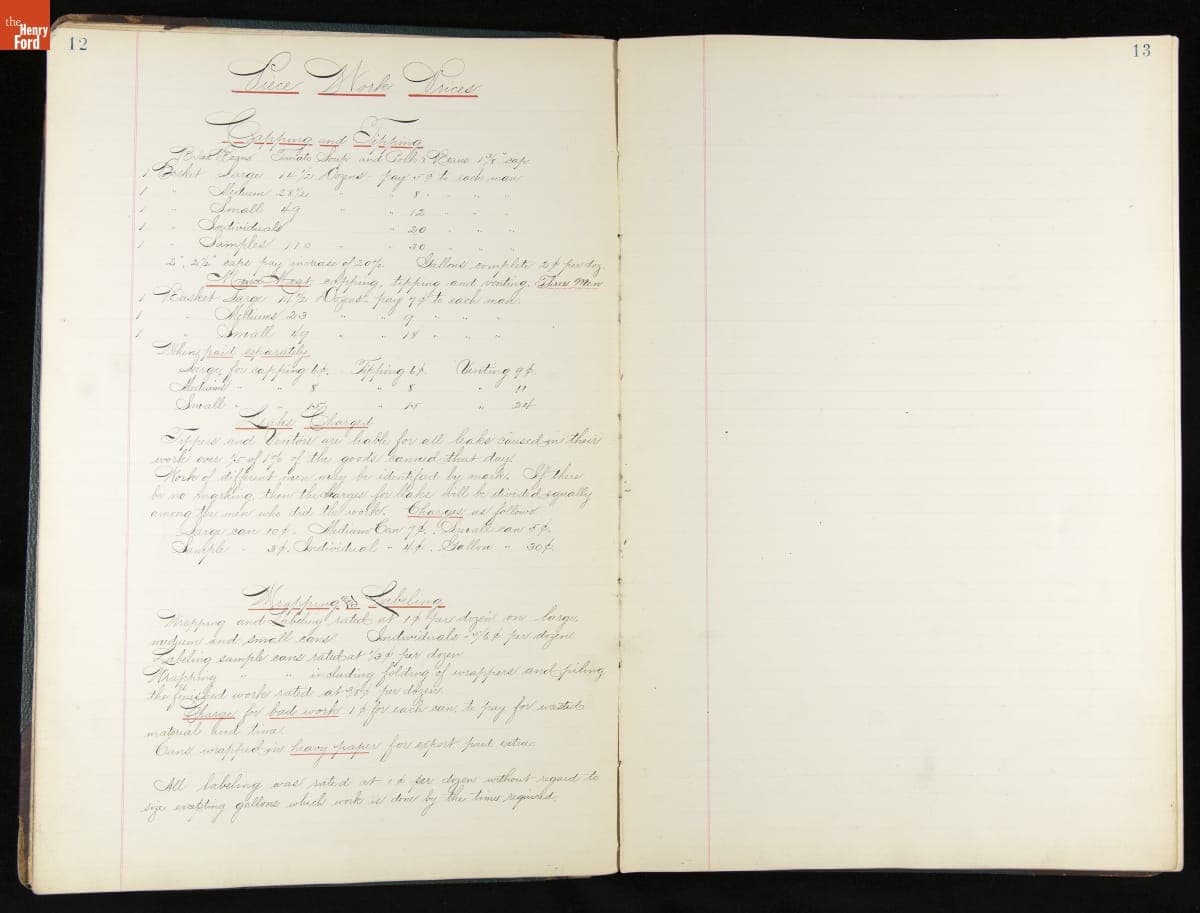 the
Henry
Ford
12
Piece Work Prices
Capping and Tipping
Beans Tomato Soup and Pork & Beans 1 5/8" cap.
1 Basket Large 14 1/2 Dozens - pay 5¢ to each man.
1 " Medium 28 1/2 " " 8 " " "
1 " Small 49 " " 12 " " "
1 " Individuals " 20 " " "
1 " Samples 110 " " 30 " " "
2", 2 1/2" caps pay increase of 20% Gallons complete 2¢ per doz.
Mince Meat capping, tipping and venting. Three Men
1 Basket Large 14 1/2 Dozens - pay 7¢ to each man.
1 " Mediums 23 " " 9 " " "
1 " Small 49 " " 18 " " "
When paid separately
Large, for capping 6¢. Tipping 6¢. Venting 9¢.
Medium " " 8 " 8 " 11
Small " " 15 " 15 " 24
Leaks Charged
Tippers and Ventors are liable for all leaks caused in their
work over 1/5 of 1% of the goods canned that day.
Work of different men may be identified by mark. If there
be no marking, then the charges for leaks will be divided equally
among the men who did the work. Charges as follows
Large can 10¢. Medium Can 7¢. Small can 5¢.
Sample " 3¢. Individual " 4¢. Gallon " 30¢.
Wrapping and Labeling
Wrapping and Labeling rated at 1¢ per dozen on large,
medium and small cans Individuals - 5/6¢ per dozen
Labeling sample cans rated at 1/3¢ per dozen
Wrapping " " including folding of wrappers and piling
the finished work rated at per dozen.
Charge for bad work 1¢ for each can, to pay for wasted
material and time.
Cans wrapped in heavy paper for export paid extra.
All labeling was rated at 1¢ per dozen without regard to
size excepting gallons which work is done by the time required.
13